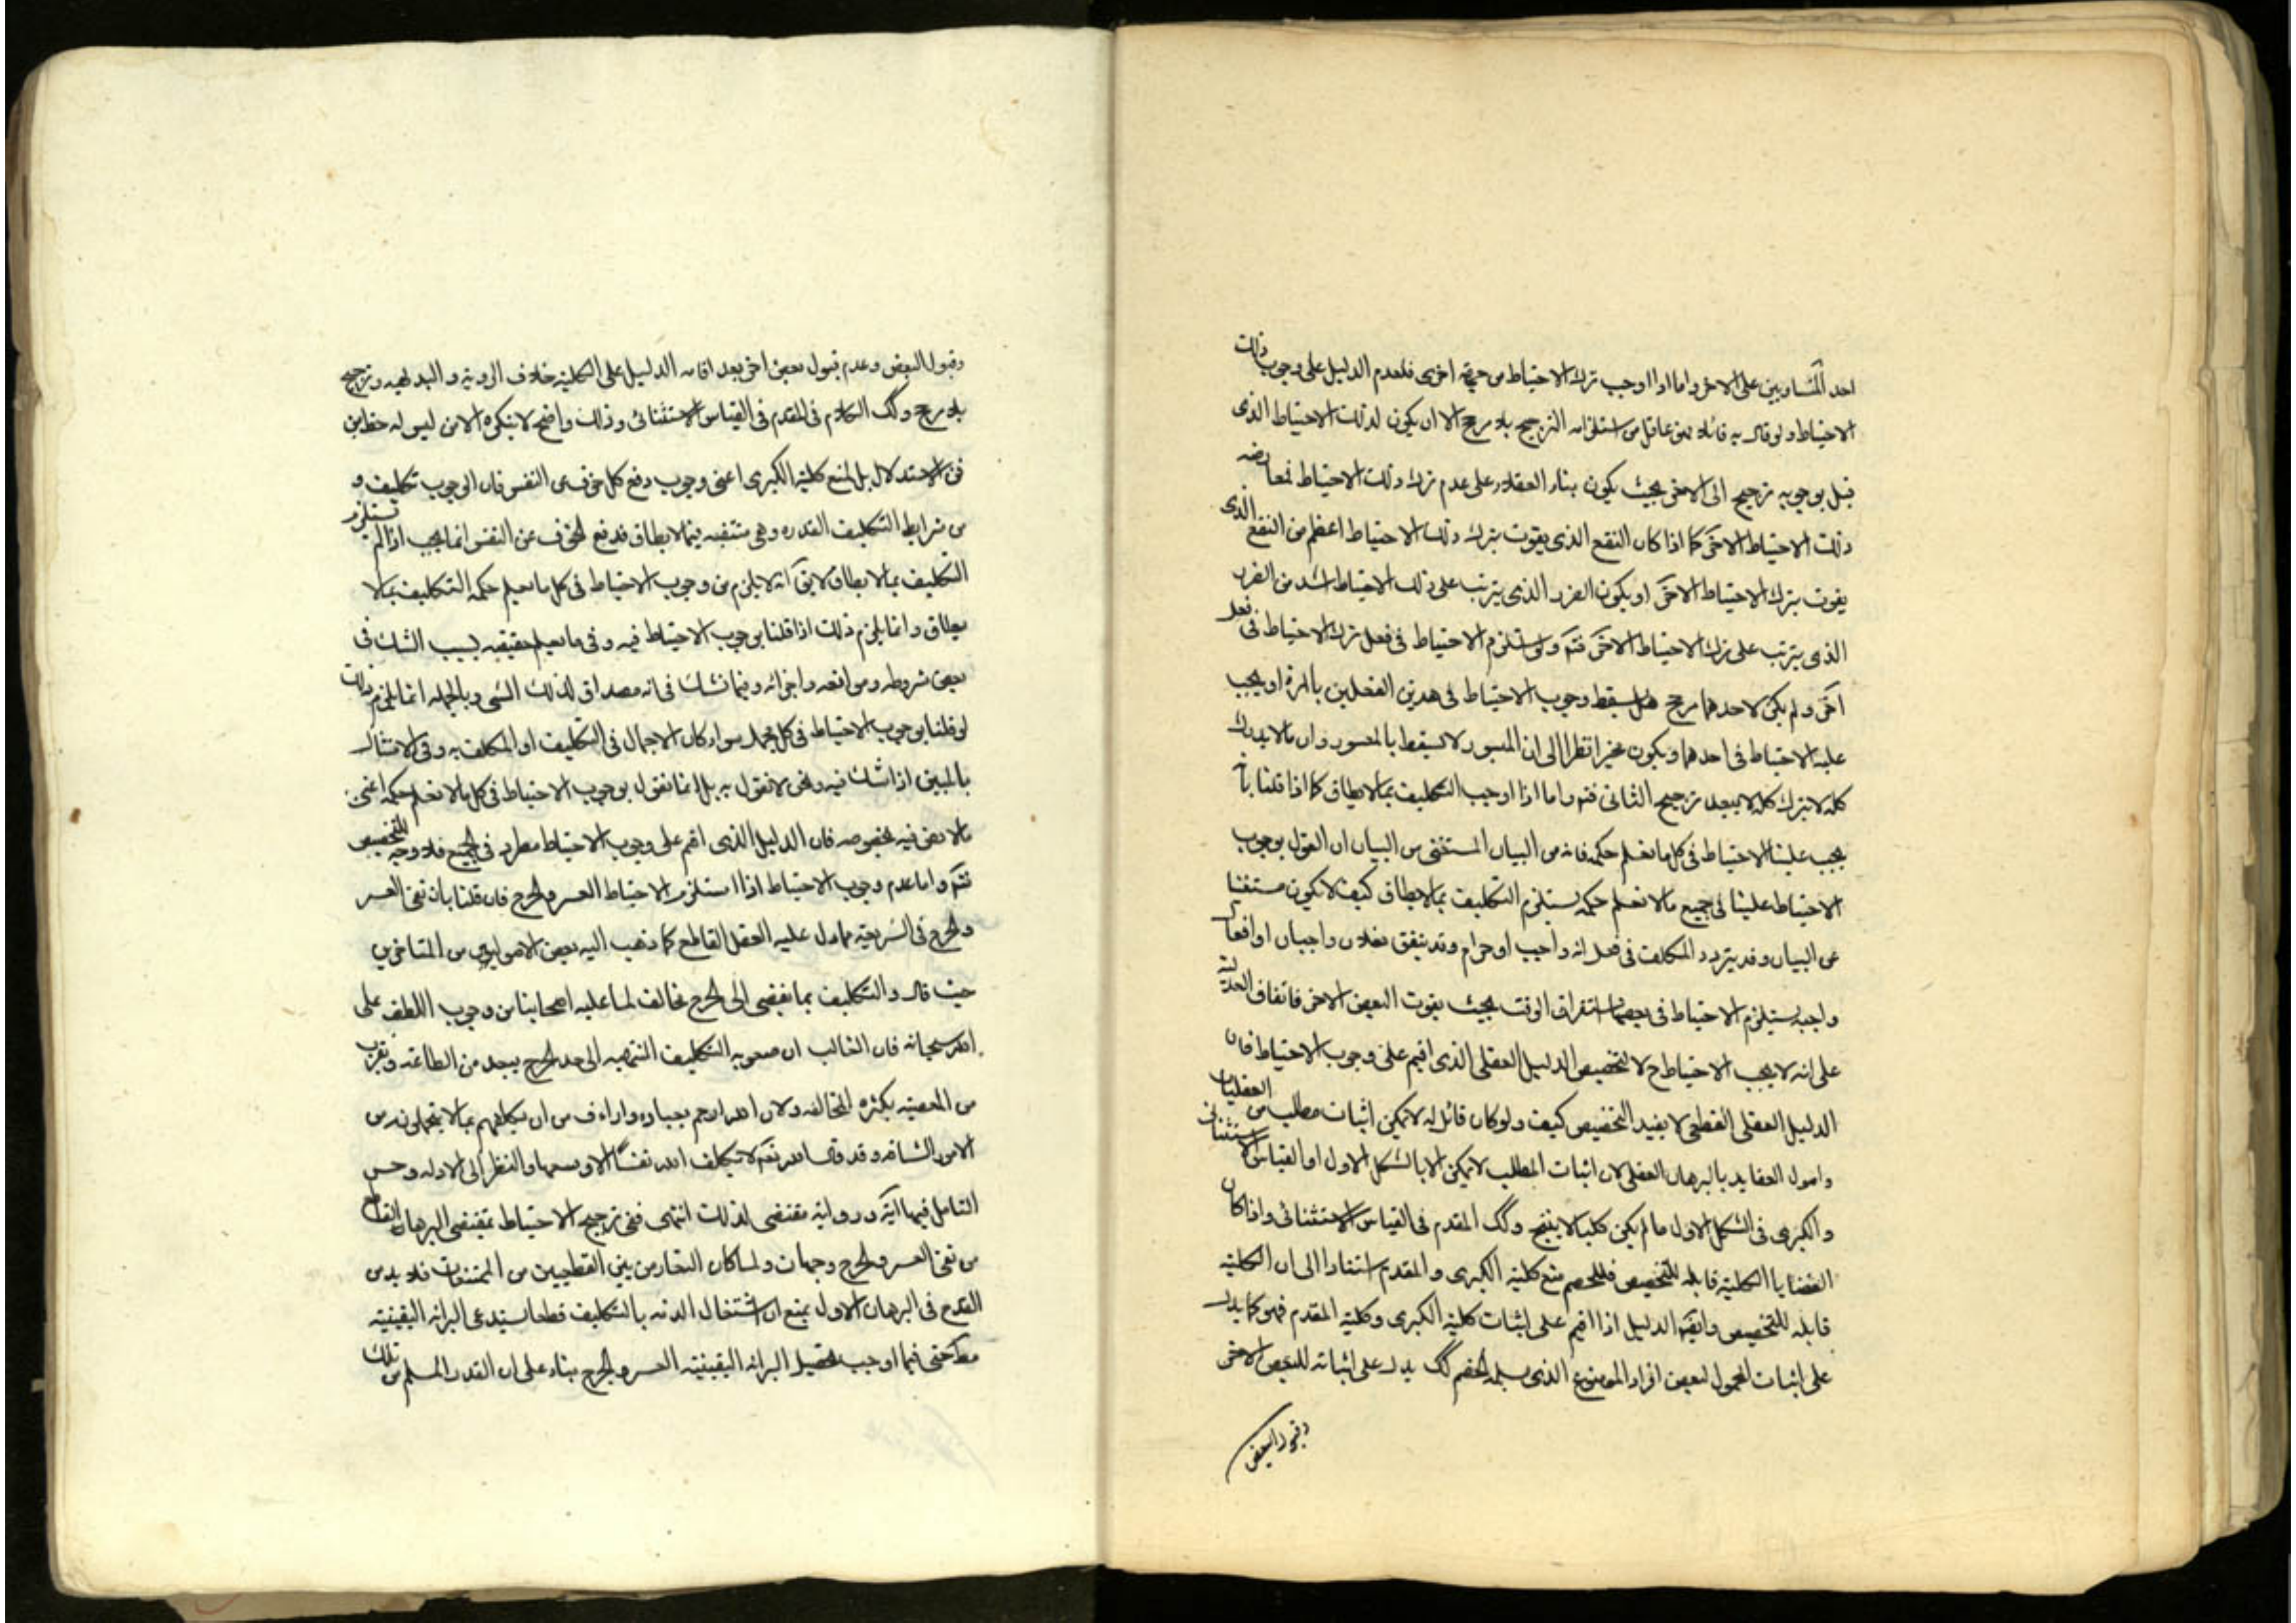 احد المتساويين على الاخر واما اذا اوجب ترك الاحتياط من جهة اخرى فلعدم الدليل على وجوب ذلك
الاحتياط ولو قال به قائلا يغفل عن استلزامه الترجيح بلا مرجح الا ان يكون لذلك الاحتياط الذى
قيل بوجوبه ترجيح الى الاخر بحيث يكون بناء العقلاء على عدم ترك ذلك الاحتياط لمعارضه
ذلك الاحتياط الاخر كما اذا كان النفع الذى يفوت بترك ذلك الاحتياط اعظم من النفع الذى
يفوت بترك الاحتياط الاخر او يكون الضرر الذى يترتب على ذلك الاحتياط اشد من الضرر
الذى يترتب على ترك الاحتياط الاخر فتم ولو استلزم الاحتياط فى فعل ترك الاحتياط فى فعل
آخر ولم يكن لاحدهما مرجح فهل يسقط وجوب الاحتياط فى هذين الفعلين بالمرة او يجب
عليه الاحتياط فى احدهما ويكون مخيرا نظرا الى ان الميسور لا يسقط بالمعسور وان ما لا يدرك
كله لا يترك كله لا يبعد ترجيح الثانى فتم واما اذا اوجب التكليف بما لا يطاق كما اذا قلنا بانه
يجب علينا الاحتياط فى كل ما نعلم حكمه فانه من البيان المستغنى من البيان ان القول بوجوب
الاحتياط علينا فى جميع ما لا نعلم حكمه يستلزم التكليف بما لا يطاق كيف لا يكون مستغنيا
عن البيان وقد يتردد المكلف فى فعل انه واجب او حرام وقد يتفق فعلان واجبان او افعال
واجبة يستلزم الاحتياط فى بعضها استغراق الوقت بحيث يفوت البعض الاخر فاتفاق العدلية
على انه لا يجب الاحتياط ح لا لتخصيص الدليل العقلى الذى اقيم على وجوب الاحتياط فان
الدليل العقلى القطعى لا يفيد التخصيص كيف ولو كان قائل له لا يمكن اثبات مطلب من العقليات
واصول العقايد بالبرهان العقلى لان اثبات المطلب لا يمكن الا بالشكل الاول او القياس الاستثنائى
والكبرى فى الشكل الاول ما لم يكن كليا لا ينتج وكك المقدم فى القياس الاستثنائى واذا كان
القضايا الكلية قابلة للتخصيص فللخصم منع كلية الكبرى والمقدم استنادا الى ان الكلية
قابلة للتخصيص وايضا الدليل اذا اقيم على اثبات كلية الكبرى وكلية المقدم فهو كما يدل
على اثبات المحمول لبعض افراد الموضوع الذى يسلمه الخصم كك يدل على اثباته للبعض الاخر
وقبول البعض
وقبول البعض وعدم قبول بعض اخر بعد اقامه الدليل على الكلية خلاف الروية والبديهه وترجيح
بلا مرجح وكك الكلام فى المقدم فى القياس الاستثنائى وذلك واضح لا ينكره الا من ليس له حظ من
فن الاستدلال بل لمنع كلية الكبرى اعنى وجوب دفع كل خوف عن النفس فان الوجوب تكليف و
من شرايط التكليف القدره وهى منتفيه فيما لا يطاق فدفع الخوف عن النفس انما يجب اذا لم يستلزم
التكليف بما لا يطاق لا يق انه لا يلزم من وجوب الاحتياط فى كل ما نعلم حكمه التكليف بما لا
يطاق وانما يلزم ذلك اذا قلنا بوجوب الاحتياط فيه وفى ما نعلم حقيقته بسبب الشك فى
بعض شروطه وموانعه واجزائه وفيما نشك فى انه مصداق لذلك الشى وبالجمله انما يلزم ذلك
لو قلنا بوجوب الاحتياط فى كل مجمل سواء كان الاجمال فى التكليف او المكلف به وفى الامتثال
بالمبين اذا شك فيه ونحن لا نقول به بل انما نقول بوجوب الاحتياط فى كل ما لا نعلم حكمه اعنى
ما لا نص فيه بخصوصه فان الدليل الذى اقيم على وجوب الاحتياط مطرد فى الجميع فلا وجه للتخصيص
فتم واما عدم وجوب الاحتياط اذا استلزم الاحتياط العسر والحرج فان قلنا بان نفى العسر
والحرج فى الشريعة مما دل عليه العقل القاطع كما ذهب اليه بعض الاصوليين من المتاخرين
حيث قال والتكليف بما يفضى الى الحرج مخالف لما عليه اصحابنا من وجوب اللطف على
الله سبحانه فان الغالب ان صعوبه التكليف المنتهيه الى حد الحرج يبعد من الطاعة ويقرب
من المعصيه بكثره المخالفه ولان الله ارحم بعباده واراءف من ان يكلفهم بما لا يتحملونه من
الامور الشاقه وقد قال الله تع لا يكلف الله نفسا الا وسعها والنظر الى الادله وحسن
التامل فيها آية ورواية مقتضى لذلك انتهى ففى ترجيح الاحتياط بمقتضى البرهان القاطع
من نفى العسر والحرج وجهات ولما كان التعارض بين القطعيين من الممتنعات فلا بد من
القدح فى البرهان الاول بمنع ان اشتغال الذمه بالتكليف قطعا يستدعى البرائه اليقينية
مطر حتى فيما اوجب تحصيل البرائه اليقينيه العسر والحرج بناء على ان القدر المسلم من تلك